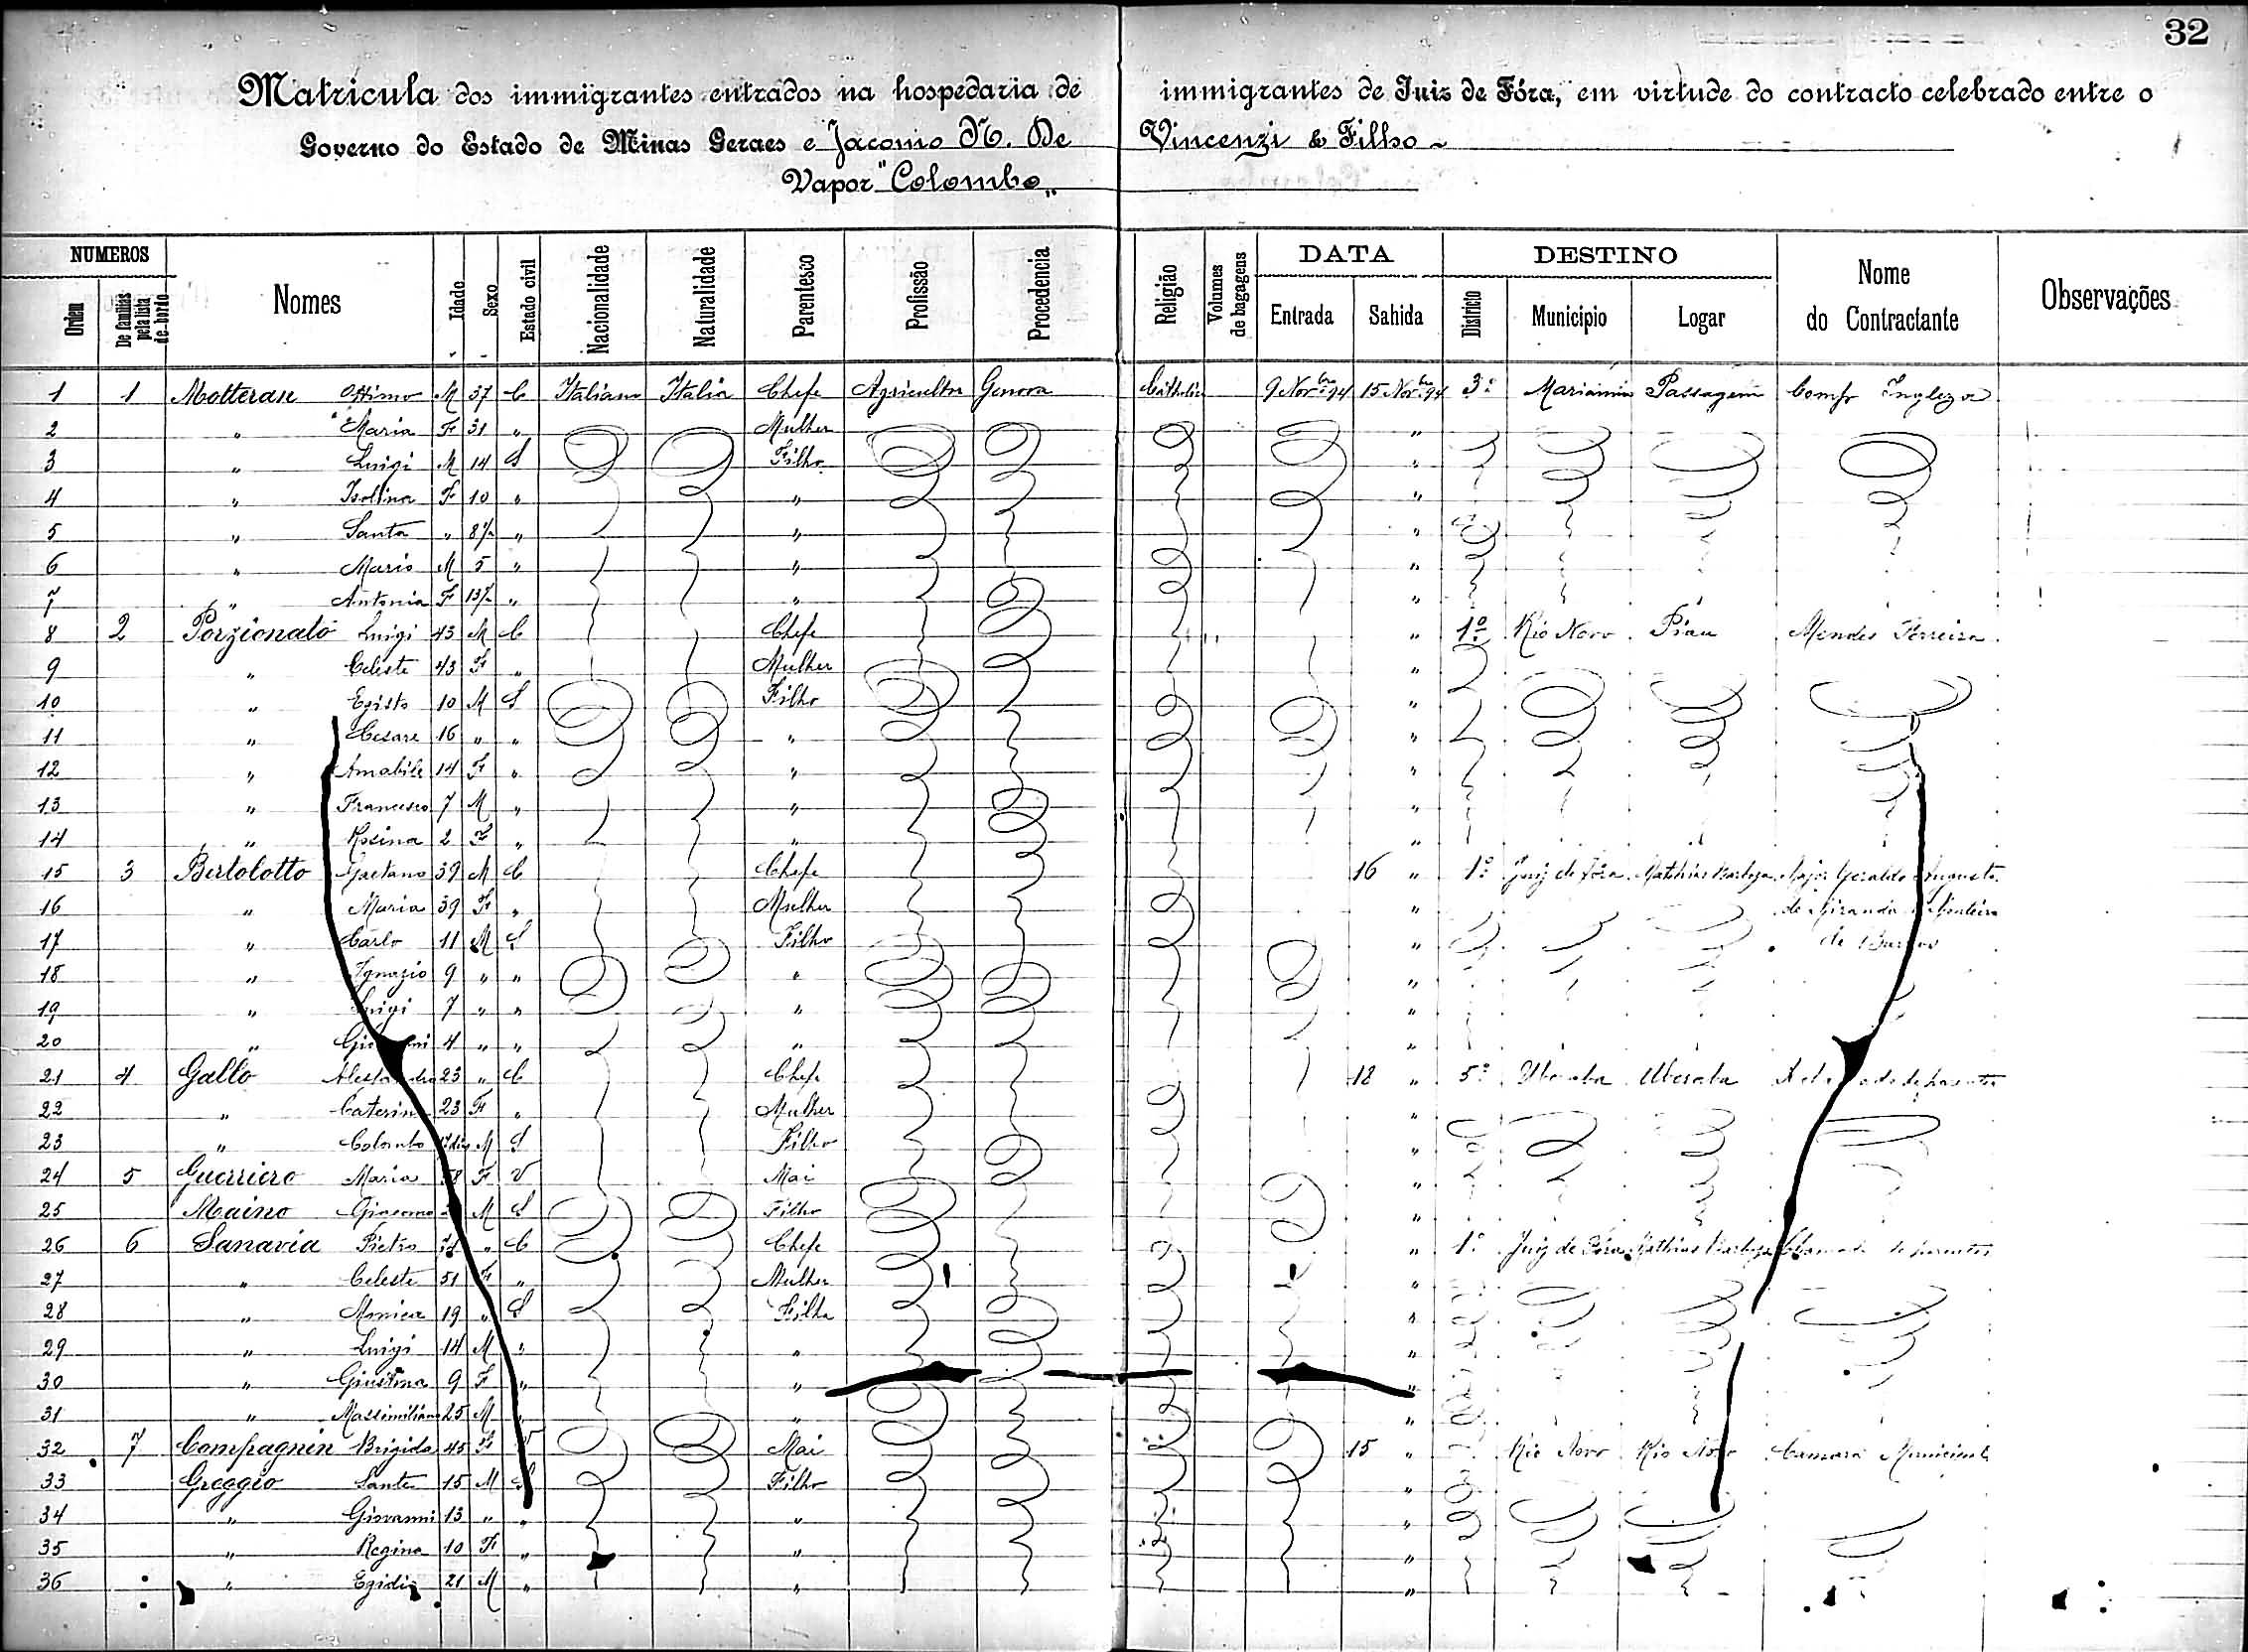 32
Matricula dos immigrantes entrados na hospedaria de immigrantes de Juiz de Fóra, em virtude do contracto celebrado entre o
Governo do Estado de Minas Geraes e Jacomo N. De Vincenzi & Filho
Vapor "Colombo"
NUMEROS DATA DESTINO
Ordem De familias pela lista de bordo Nomes Idade Sexo Estado civil Nacionalidade Naturalidade Parentesco Profissão Procedencia Religião Volumes de bagagens Entrada Sahida Districto Municipio Logar Nome do Contractante Observações
1 1 Motteran Ottimo M 37 C Italiano Italia Chefe Agricultor Genova Catholic 9 Novbro 94 15 Novbro 94 3º Marianna Passagem Comp Ingleza
2 " Maria F 31 " Mulher "
3 " Luigi M 14 S Filho "
4 " Isolina F 10 " " "
5 " Santa " 8 1/2 " " "
6 " Mario M 5 " " "
7 " Antonia F " " "
8 2 Porzionato Luigi 43 M C Chefe " 1º Rio Novo Piau Mendes Ferreira
9 " Celeste 43 F " Mulher "
10 " Egisto 10 M S Filho "
11 " Cesare 16 " " " "
12 " Amabile 14 F " " "
13 " Francesco 7 M " " "
14 " Rosina 2 F " " "
15 3 Bertolotto Gaetano 39 M C Chefe 16 " 1º Juiz de Fóra Mathias Barboza Major Geraldo Augusto
16 " Maria 39 F " Mulher " de Miranda Monteiro
17 " Carlo 11 M S Filho " de Barros
18 " Ignazio 9 " " " "
19 " Luigi 7 " " " "
20 " Giovanni 4 " " " "
21 4 Gallo Alessandro 23 " C Chefe 18 " 5º Uberaba Uberaba de parentes
22 " Caterina 23 F " Mulher "
23 " Colombo M S Filho "
24 5 Guerriero Maria F V Mai "
25 Maino Giacomo M S Filho "
26 6 Sanavia Pietro " C Chefe " 1º Juiz de Fóra Mathias Barboza Chamado de parentes
27 " Celeste 51 F " Mulher "
28 " Monica 19 " S Filha "
29 " Luigi 14 M " " "
30 " Giustina 9 F " " "
31 " Massimiliano 25 M " " "
32 7 Compagnin Brigida 45 F V Mai 15 " Rio Novo Rio Novo Camara Municipal
33 Greggio Sante 15 M S Filho "
34 " Giovanni 13 " " " "
35 " Regina 10 F " " "
36 " Egidio 21 M " " "